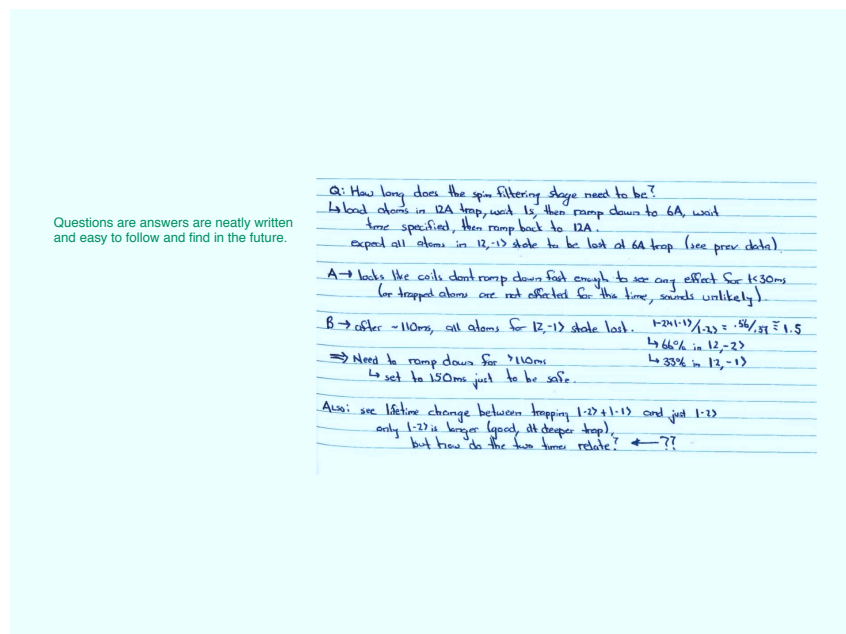 Questions are answers are neatly written
and easy to follow and find in the future.
Q: How long does the spin filtering stage need to be?
↳ load atoms in 12A trap, wait 1s, then ramp down to 6A, wait
time specified, then ramp back to 12A.
expect all atoms in |2,-1> state to be lost at 6A trap (see prev data).
A → looks like coils dont ramp down fast enough to see any effect for t<30ms
(or trapped atoms are not affected for this time, sounds unlikely).
B → after ~110ms, all atoms for |2,-1> state lost. |-2>+|-1>/|-2> = .56/.37 ≅ 1.5
↳ 66% in |2,-2>
⇒ Need to ramp down for >110ms ↳ 33% in |2,-1>
↳ set to 150ms just to be safe.
Also: see lifetime change between trapping |-2>+|-1> and just |-2>
only |-2> is longer (good, at deeper trap),
but how do the two times relate? ←??